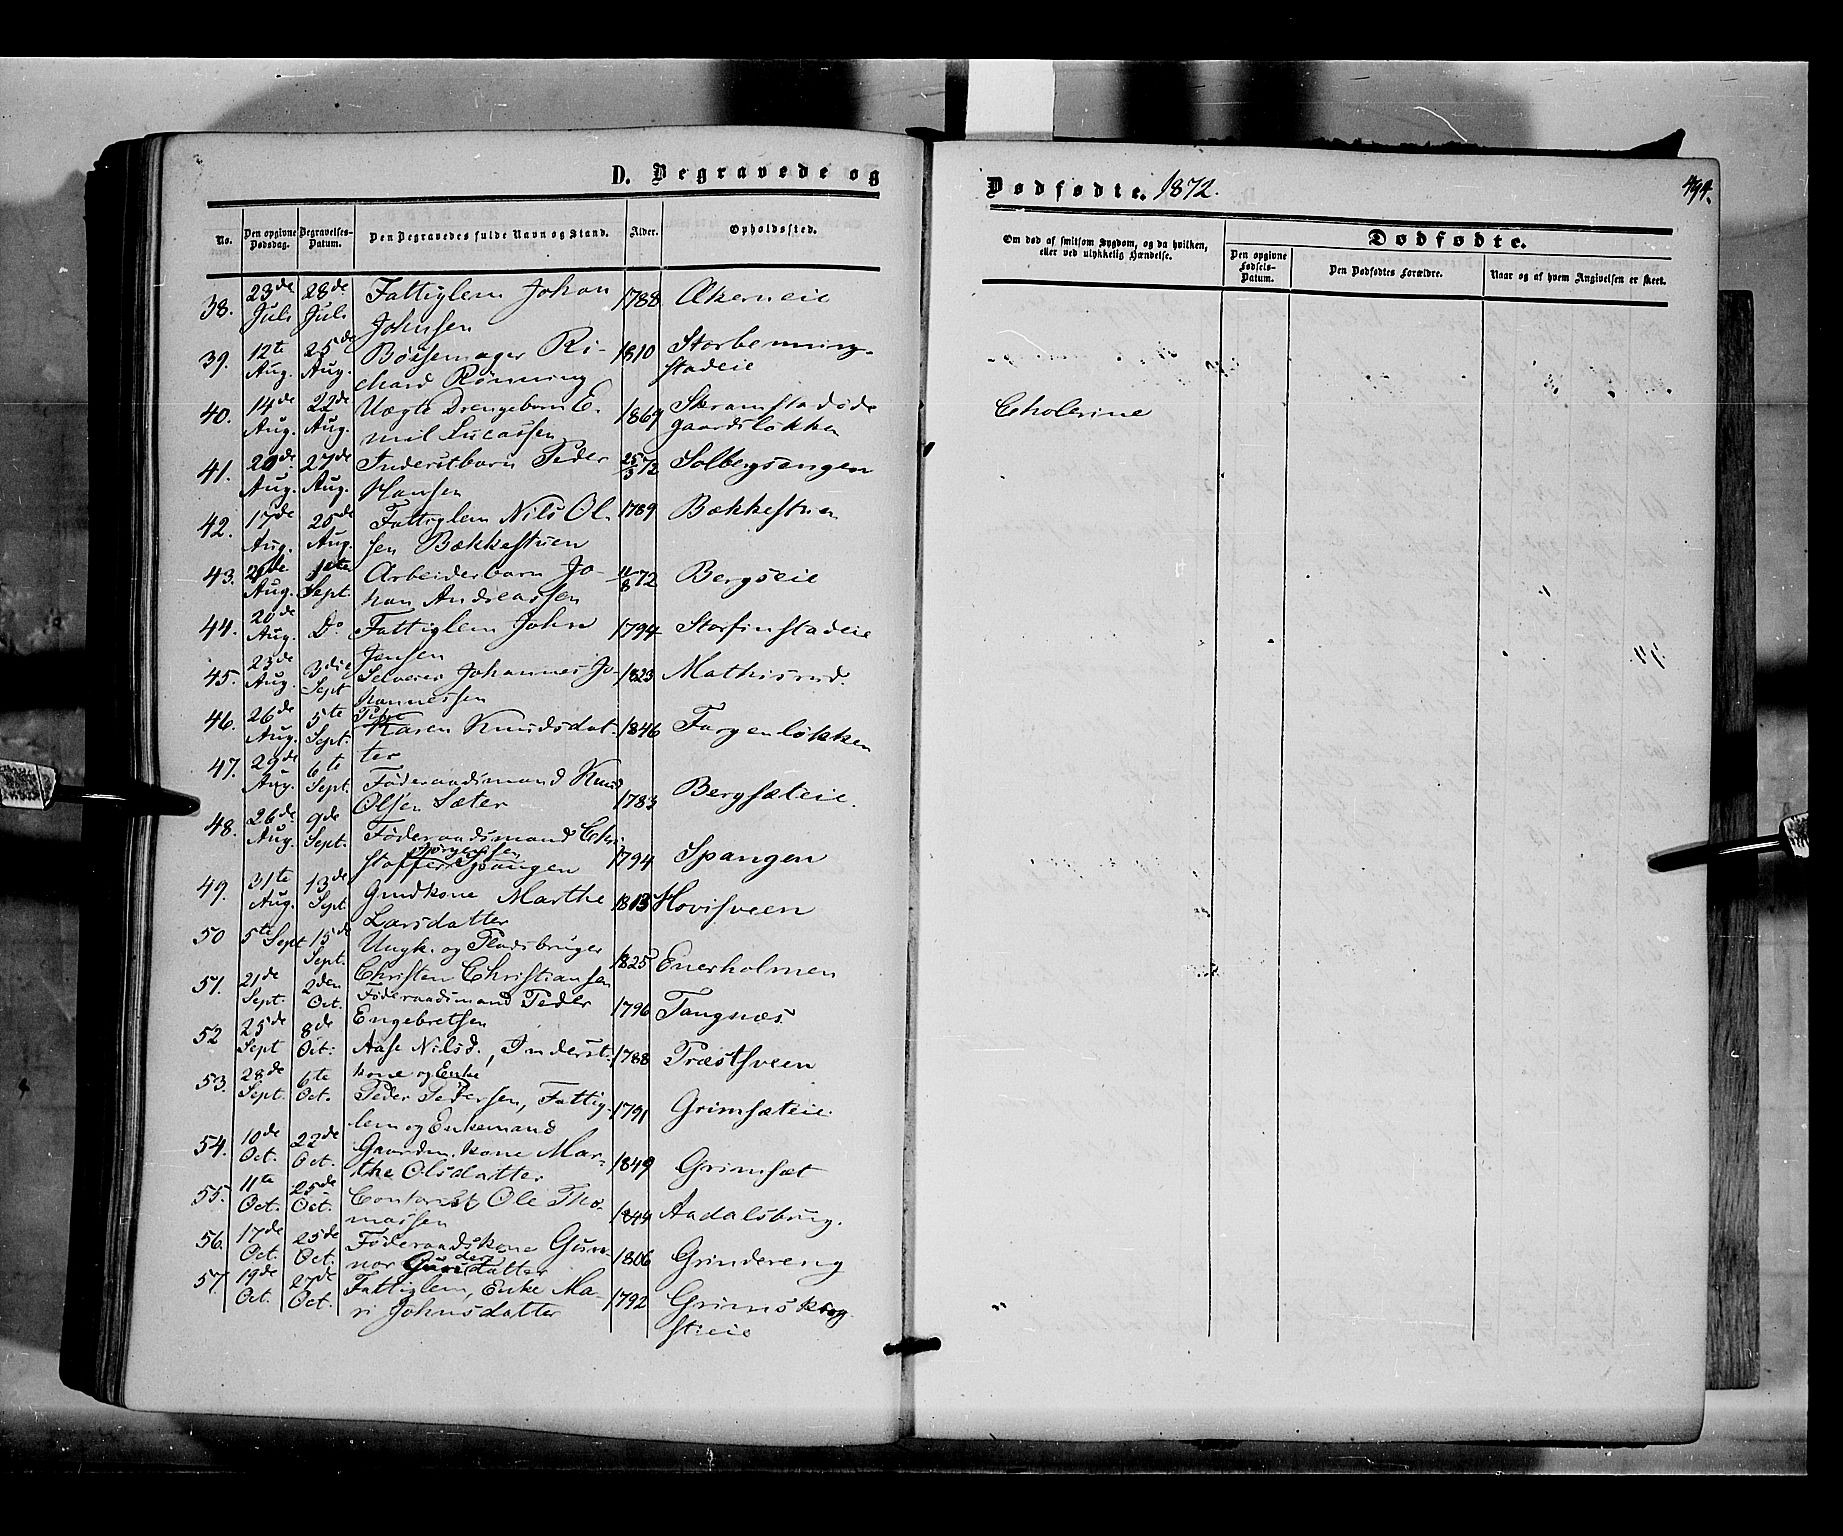 D. Begravede og
Dødfødte. 1872.
494.
No.
Den opgivne Dødsdag.
Begravelses-Datum.
Den Begravedes fulde Navn og Stand.
Alder.
Opholdssted.
Om død af smitsom Sygdom, og da hvilken,
eller ved ulykkelig Hændelse.
Dødfødte.
Den opgivne Fødsels-Datum.
Den Dødfødtes Forældre.
Naar og af hvem Angivelsen er skeet.
38. 23de Juli 28de Juli Fattiglem Johan Johnsen 1788 Akerneie
39. 12te Aug. 25de Aug. Bøssemager Richard Rønning 1810 Storbenningstadeie
40. 14de Aug. 22de Aug. Uægte Drengebarn Emil Lucassen 1869 Skramstadødegaardsløkken Cholerine
41. 20de Aug. 27de Aug. Inderstbarn Peder Hansen 25/5 72 Solbergsengen
42. 17de Aug. 25de Aug. Fattiglem Nils Olsen Bækkestuen 1789 Bækkestuen
43. Aug. 1ste Sept Arbeiderbarn Johan Andreassen 11/8 72 Bergseie
44. 20de Aug. Do Fattiglem John Jensen 1794 Storfinstadeie
45. 23de Aug. 3die Sept Selveier Johannes Johannessen 1823 Mathisrud.
46. 26de Aug. 5te Sept. Pige Karen Knudsdatter 1846 Fargenløkken
47. 29de Aug. 6te Sept. Føderaadsmand Knud Olsen Sæter 1783 Bergsæteie.
48. 26de Aug. 9de Sept. Føderaadsmand Christoffer Jørgensen Spangen 1794 Spangen
49. 31te Aug. 13de Sept Gmdkone Marthe Larsdatter 1813 Hovisveen
50 5te Sept 15de Sept. Ungk. og Pladsbruger Christen Christiansen 1825 Enerholmen
51. 21de Sept. 2den Oct. Føderaadsmand Peder Engebretsen 1796 Tangnæs.
52 25de Sept 8de Oct: Aase Nilsd., Inderstkone og Enke 1788 Præstsveen
53. 28de Sept. 6te Oct. Peder Pedersen, Fattiglem og Enkemand 1791 Grimsæteie.
54. 10de Oct. 22de Oct. Gaardm. kone Marthe Olsdatter 1849 Grimsæt
55. 11te Oct. 25de Oct. Contorist Ole Thomassen 1844 Aadalsbrug.
56. 17de Oct. 25de Oct. Føderaadskone Gunnor datter 1806 Grindereng
57. 19de Oct. 27de Oct. Fattiglem, Enke Mari Johnsdatter 1792 Grimskrogstieie